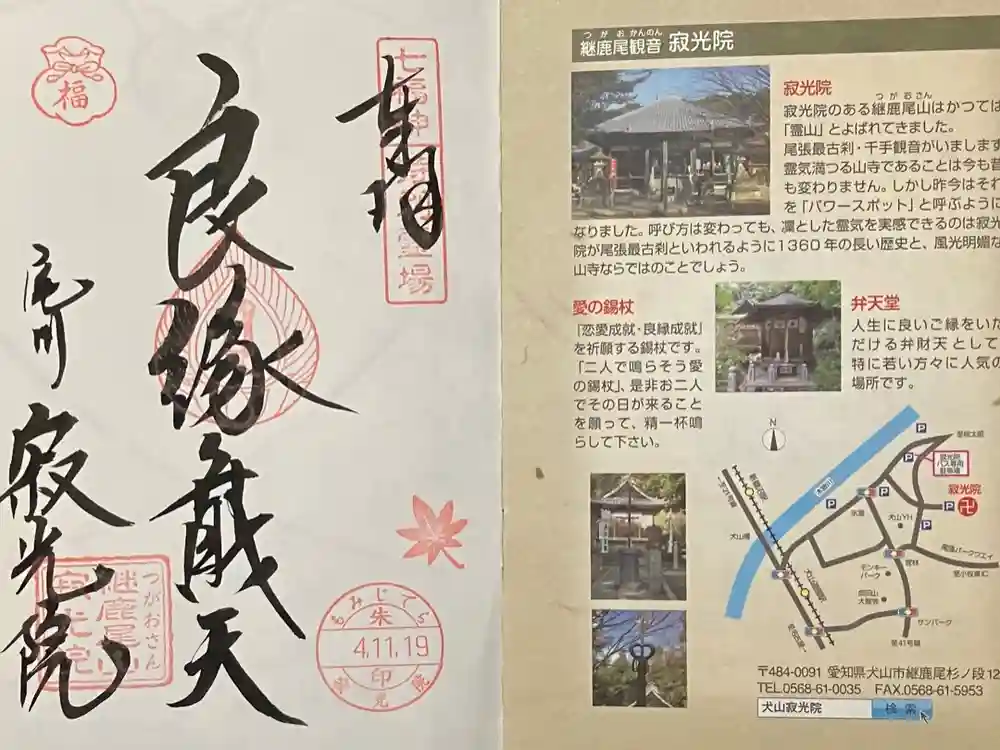 福
奉拝
七福神
霊場
良縁弁戝天
尾州
寂光院
つがおさん
継鹿尾山
寂光院
もみじでら
朱
4.11.19
印
寂光院
つがおかんのん
継鹿尾観音 寂光院
寂光院
つがおさん
寂光院のある継鹿尾山はかつては
「霊山」とよばれてきました。
尾張最古刹・千手観音がいます
霊気満つる山寺であることは今も昔
も変わりません。しかし昨今はそれ
を「パワースポット」と呼ぶように
なりました。呼び方は変わっても、凛とした霊気を実感できるのは寂光
院が尾張最古刹といわれるように1360年の長い歴史と、風光明媚な
山寺ならではのことでしょう。
愛の錫杖
『恋愛成就・良縁成就』
を祈願する錫杖です。
「二人で鳴らそう愛
の錫杖」、是非お二人
でその日が来ること
を願って、精一杯鳴
らして下さい。
弁天堂
人生に良いご縁をいた
だける弁財天として
特に若い方々に人気の
場所です。
N
P
木曽川
至桃太郎
P
寂光院
バス専用
駐車場
寂光院
卍
P
P
P
犬山YH
犬山橋
尾張パークウエイ
至小牧東IC
官林
モンキー
パーク
サンパーク
至41号線
〒484-0091 愛知県犬山市継鹿尾杉ノ段12
TEL.0568-61-0035 FAX.0568-61-5953
犬山寂光院 検索